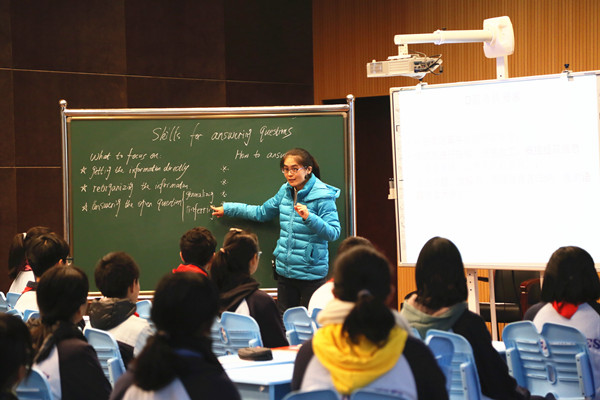 Skills for answering questions
What to focus on: How to
★ getting the information directly ★
★ reorganizing the information ★
★ Answering the open question